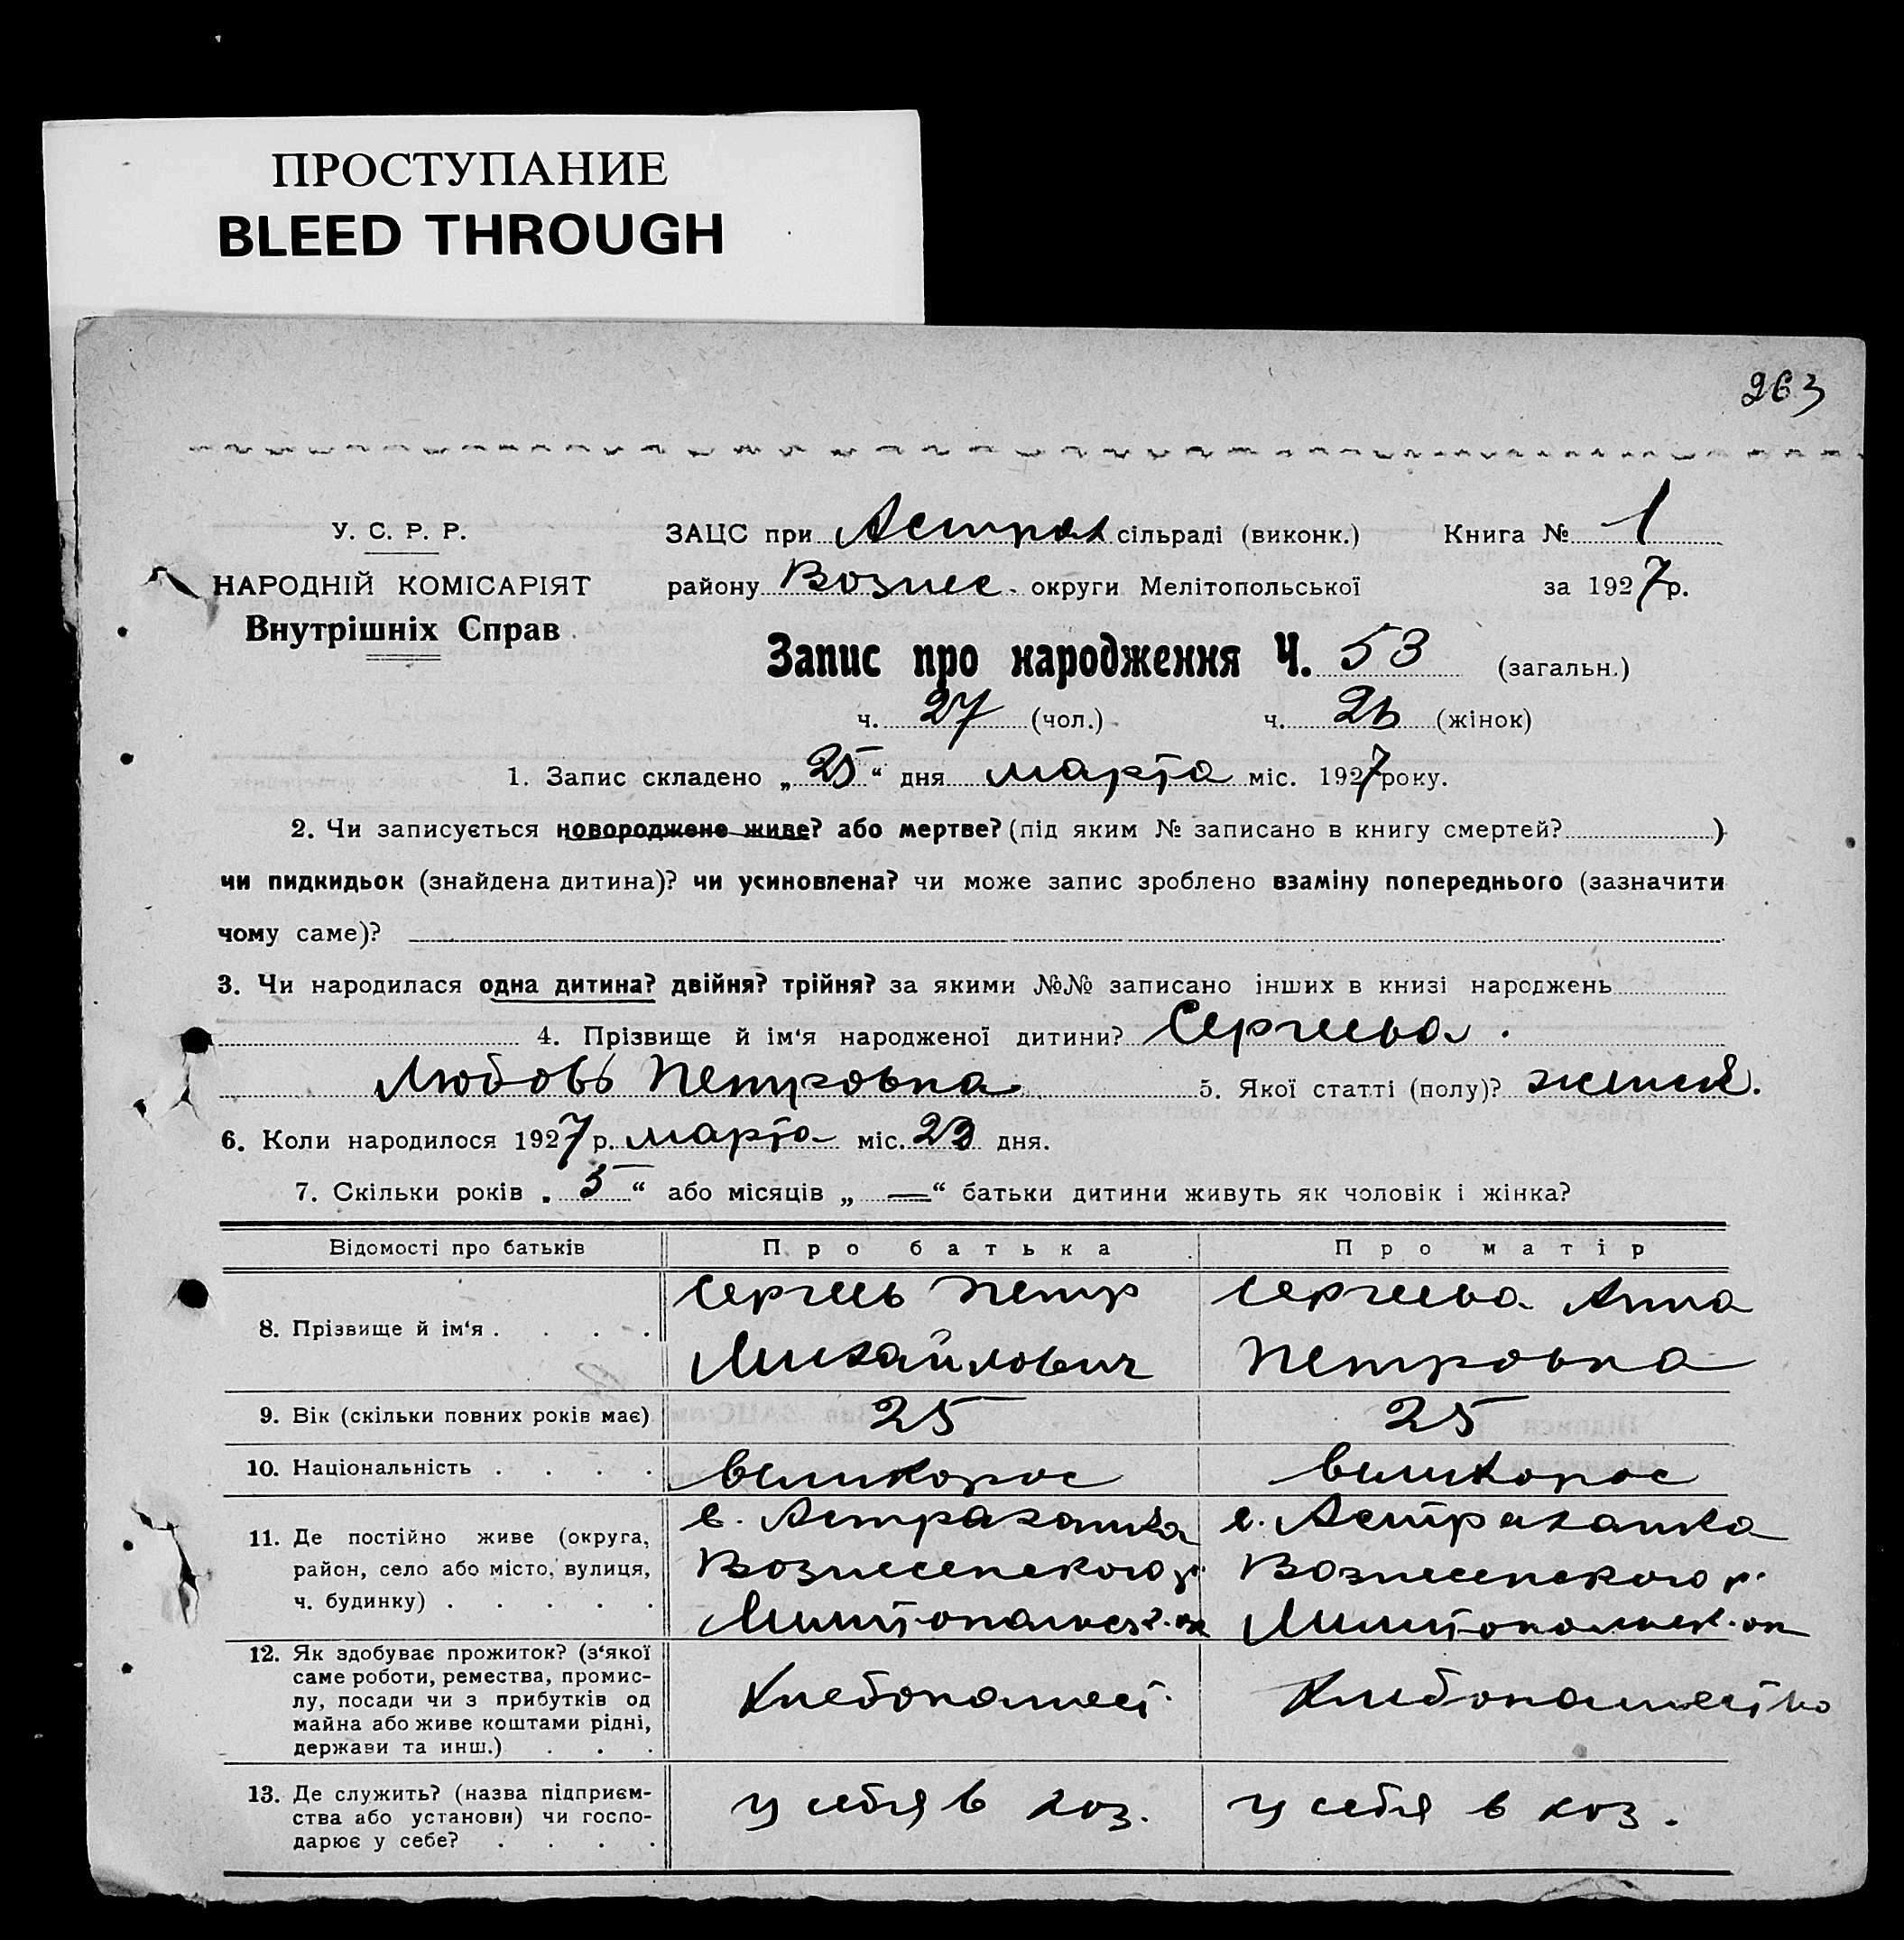 ПРОСТУПАНИЕ
BLEED THROUGH
263
У. С. Р. Р.
НАРОДНІЙ КОМІСАРІЯТ
Внутрішніх Справ
ЗАЦС при Астрах сільраді (виконк.) Книга № 1
району Вознес. округи Мелітопольської за 1927 р.
Запис про народження Ч. 53 (загальн.)
ч. 27 (чол.) ч. 26 (жінок)
1. Запис складено „25“ дня марта міс. 1927 року.
2. Чи записується новороджене живе? або мертве? (під яким № записано в книгу смертей? )
чи пидкидьок (знайдена дитина)? чи усиновлена? чи може запис зроблено взаміну попереднього (зазначити
чому саме)?
3. Чи народилася одна дитина? двійня? трійня? за якими №№ записано інших в книзі народжень
4. Прізвище й ім‘я народженої дитини? Сергеева.
Любовь Петровна 5. Якої статті (полу)? женск.
6. Коли народилося 1927 р. марта міс. 23 дня.
7. Скільки років „5“ або місяців „ — “ батьки дитини живуть як чоловік і жінка?
Відомості про батьків Про батька Про матір
8. Прізвище й ім‘я . . . . Сергеев Петр Михайлович Сергеева Анна Петровна
9. Вік (скільки повних років має) 25 25
10. Національність . . . . великорос великорос
11. Де постійно живе (округа, с. Астраханка с. Астраханка
район, село або місто, вулиця, Вознесенского р. Вознесенского р.
ч. будинку) . . . . . Милитопольск. ок Милитопольск. ок
12. Як здобуває прожиток? (з‘якої
саме роботи, ремества, промис-
лу, посади чи з прибутків од Хлебопашест. Хлебопашество
майна або живе коштами рідні,
держави та инш.) . . .
13. Де служить? (назва підприєм- у себя в хоз. у себя в хоз.
ства або установи) чи госпо-
дарює у себе? . . . .